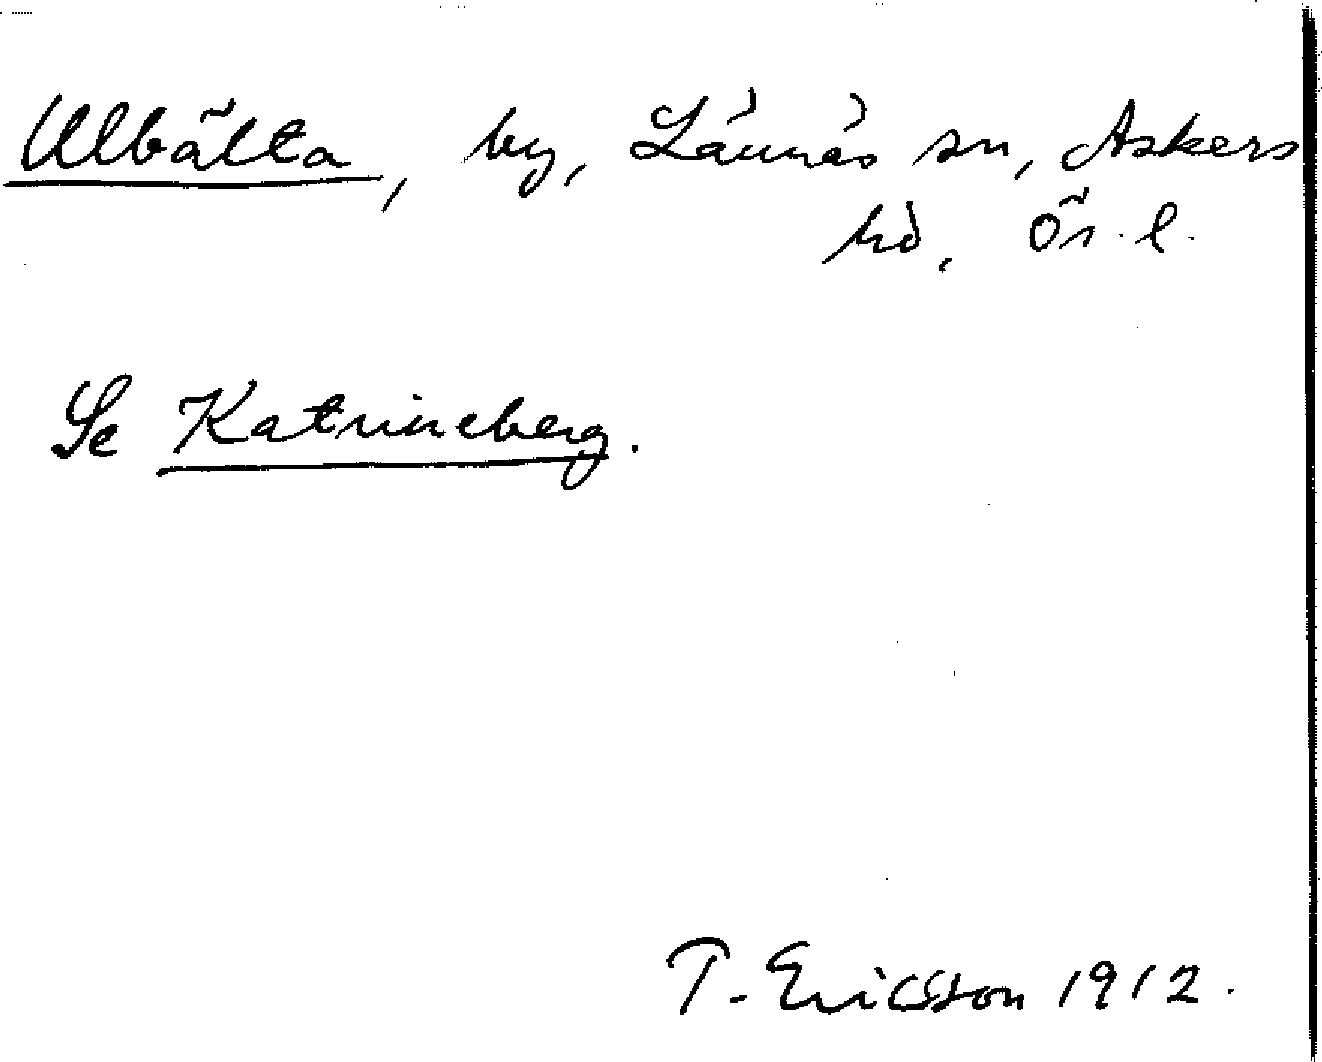 Ulbälta, by, Lännäs sn, Askers
hd, Ör. l.
Se Katrineberg.
T. Ericsson 1912.